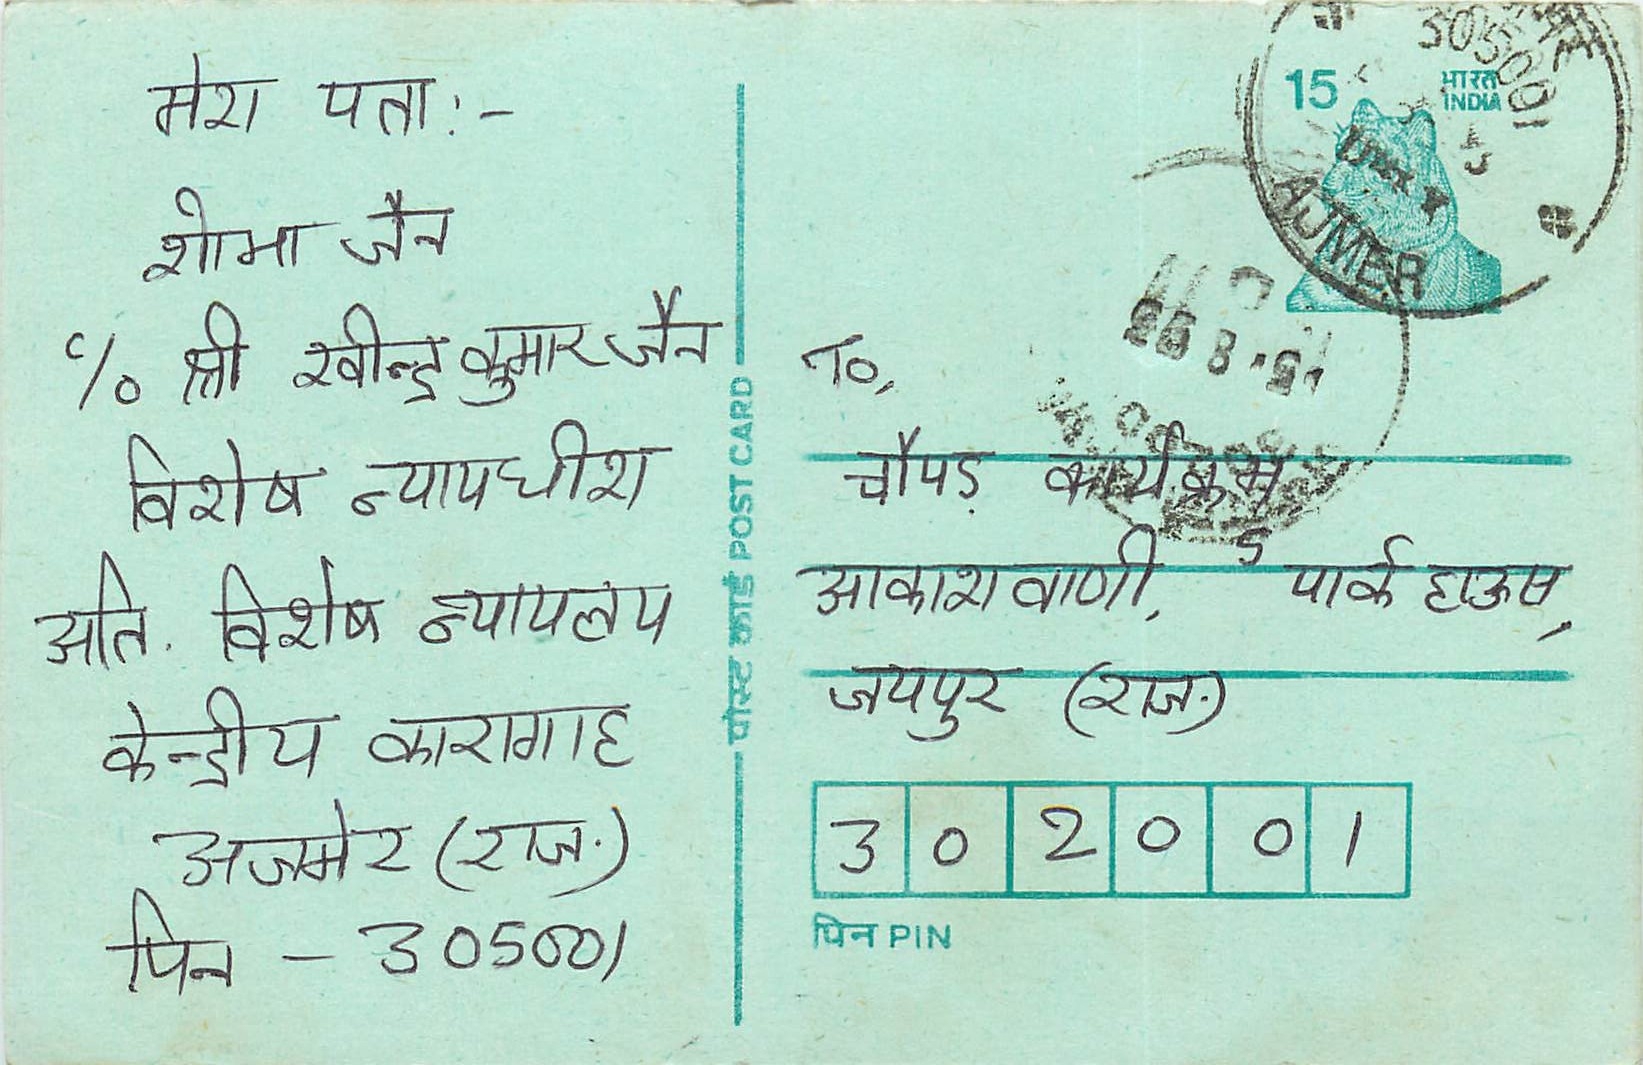 मेरा पता:-
शोभा जैन
c/o श्री रवीन्द्र कुमार जैन
विशेष न्यायधीश
अति. विशेष न्यायलय
केन्द्रीय कारागाह
अजमेर (राज.)
पिन - 305001
पोस्ट कार्ड POST CARD
15
भारत
INDIA
305001
AJMER
To,
चौपड़ कार्यक्रम
आकाशवाणी, 5 पार्क हाऊस,
जयपुर (राज.)
302001
पिन PIN